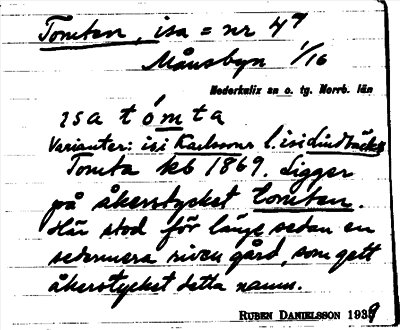 Tomten, isa = nr 47
Månsbyn 1/16
Nederkalix sn o. tg. Norrb. län
isa tómta
Varianter: isi Karlssons l. isi Lindbäcks
Tomta kb 1869. Ligger
på åkerstycket Tomten.
Här stod för länge sedan en
sedermera riven gård, som gett
åkerstycket detta namn.
RUBEN DANIELSSON 1939